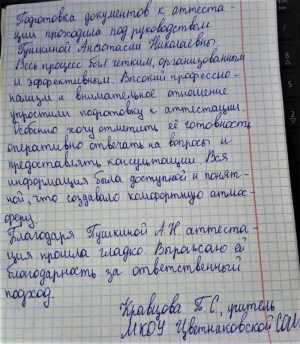 Подготовка документов к аттеста-
ции проходила под руководством
Пушкиной Анастасии Николаевны.
Весь процесс был четким, организованным
и эффективным. Высокий профессио-
нализм и внимательное отношение
упростили подготовку к аттестации.
Особенно хочу отметить её готовность
оперативно отвечать на вопросы и
предоставлять консультации. Вся
информация была доступной и понят-
ной, что создавало комфортную атмос-
феру.
Благодаря Пушкиной А.Н. аттеста-
ция прошла гладко. Выражаю ей
благодарность за ответственный
подход.
Кравцова Т.С., учитель
МКОУ Цветнаковской СОШ